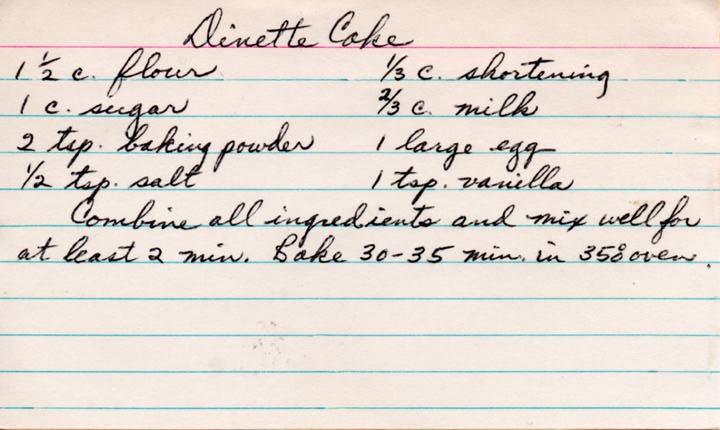 Dinette Cake
1 1/2 c. flour 1/3 c. shortening
1 c. sugar 2/3 c. milk
2 tsp. baking powder 1 large egg
1/2 tsp. salt 1 tsp. vanilla
Combine all ingredients and mix well for
at least 2 min. Bake 30-35 min. in 350° oven.